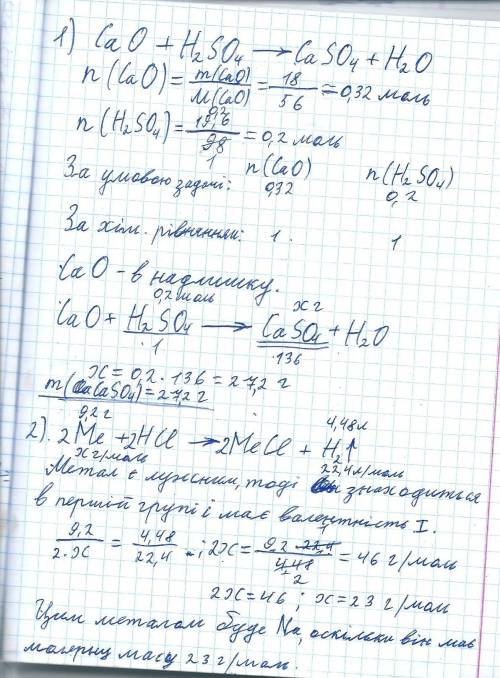 1) CaO + H₂SO₄ → CaSO₄ + H₂O
n(CaO) = m(CaO)/M(CaO) = 18/56 = 0,32 моль
n(H₂SO₄) = 19,6/98 = 0,2 моль
0,2
1
За умовою задачі: n(CaO) n(H₂SO₄)
0,32 0,2
За хім. рівнянням: 1. 1
CaO - в надлишку.
0,2 моль x г
CaO + H₂SO₄ → CaSO₄ + H₂O
1 136
x = 0,2 · 136 = 27,2 г
m(CaSO₄) = 27,2 г
9,2 г 4,48 л
2). 2Me + 2HCl → 2MeCl + H₂↑
x г/моль 22,4 л/моль
Метал є лужним, тоді знаходиться
в першій групі і має валентність I.
9,2/2·x = 4,48/22,4 ; 2x = 9,2·22,4/4,48 = 46 г/моль
1
2
2x = 46 ; x = 23 г/моль
Цим металом буде Na, оскільки він має
молярну масу 23 г/моль.